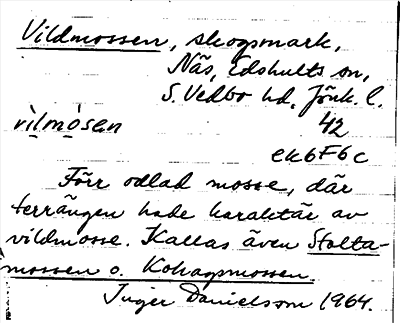 Vildmossen, skogsmark,
Näs, Edshults sn,
S. Vedbo hd, Jönk. l.
vìlmó̀sən 42
ek 6F6c
Förr odlad mosse, där
terrängen hade karaktär av
vildmosse. Kallas även Stolta-
mossen o. Kohagsmossen.
Inger Danielsson 1964.